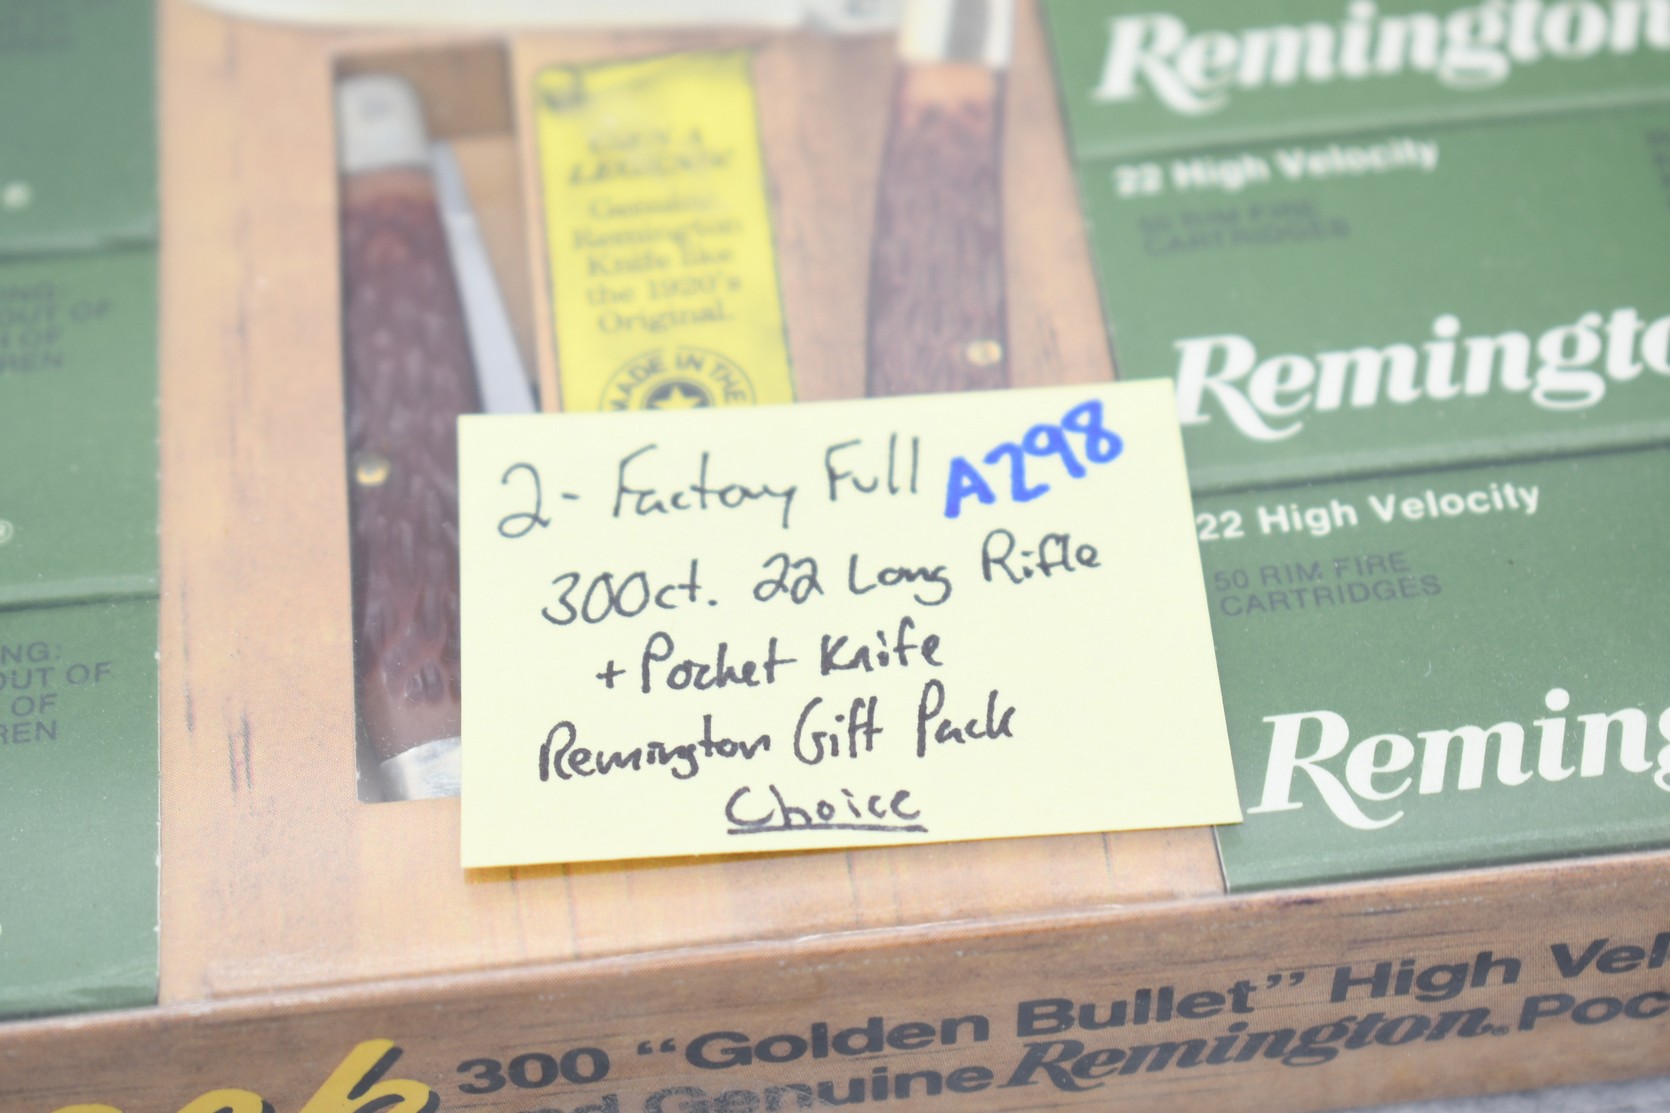 Remington
22 High Velocity
50 RIM FIRE
CARTRIDGES
Genuine
Remington
Knife like
the 1920's
Original.
MADE IN THE
Remingto
22 High Velocity
50 RIM FIRE
CARTRIDGES
Reming
NG:
OUT OF
OF
REN
NG:
OUT OF
OF
REN
2 - Factory Full A298
300ct. 22 Long Rifle
+ Pocket Knife
Remington Gift Pack
Choice
300 "Golden Bullet" High Vel
nd Genuine Remington. Poc